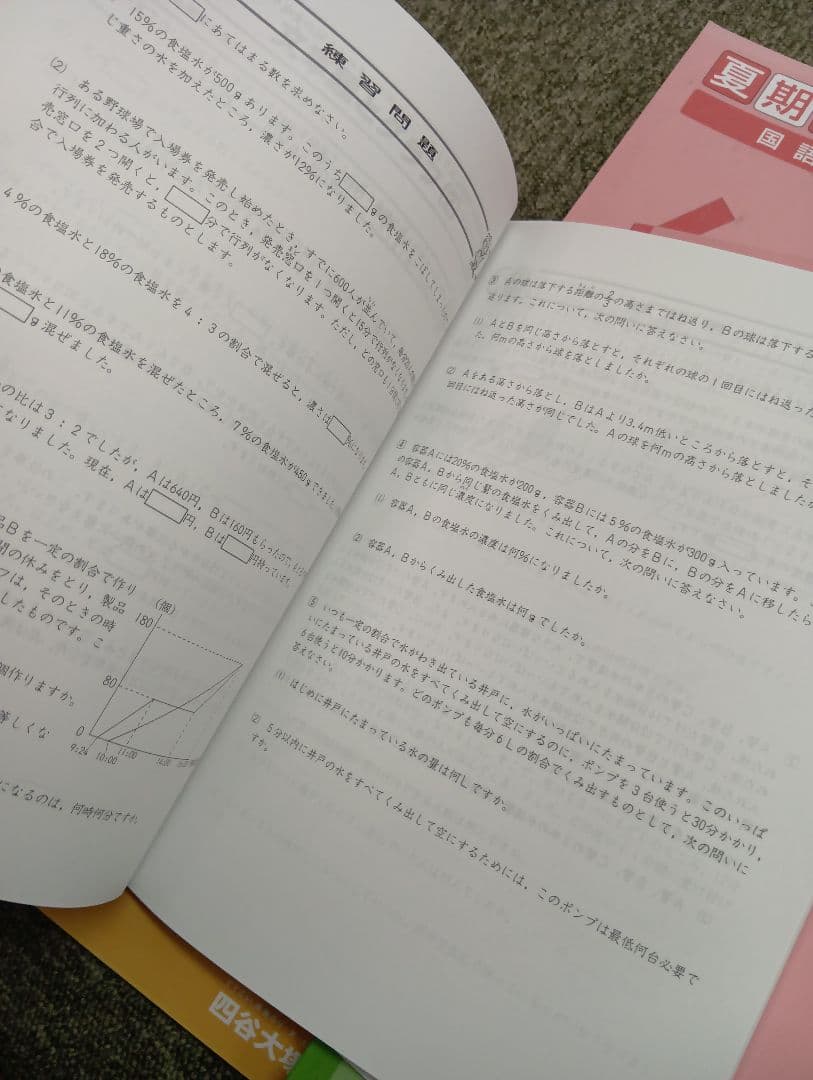 練習問題
にあてはまる数を求めなさい。
15%の食塩水が500gあります。このうち gの食塩水をこぼして
じ重さの水を加えたところ，濃さが12%になりました。
(2) ある野球場で入場券を発売し始めたとき，すでに600人が並んでいて，
行列に加わる人がいます。このとき，発売窓口を1つ開くと15分で行列がなくなり
売窓口を2つ開くと， 分で行列がなくなります。ただし，どの窓口も
合で入場券を発売するものとします。
4%の食塩水と18%の食塩水を4：3の割合で混ぜると，濃さは %
食塩水と11%の食塩水を混ぜたところ，7%の食塩水が450gできました
g混ぜました。
の比は3：2でしたが，Aは640円，Bは160円もらったので，
になりました。現在，Aは 円，Bは 円持っています。
品Bを一定の割合で作り
間の休みをとり，製品
フは，そのときの時
したものです。こ
(個)
180
80
0
9:24
10:00
11:00
個作りますか。
等しくな
になるのは，何時何分ですか。
3 Aの球は落下する距離の2/3の高さまではね返り，Bの球は落下する
返ります。これについて，次の問いに答えなさい。
(1) AとBを同じ高さから落とすと，それぞれの球の1回目にはね返った
た。何mの高さから球を落としましたか。
(2) Aをある高さから落とし，BはAより3.4m低いところから落とすと，そ
回目にはね返った高さが同じでした。Aの球を何mの高さから落としましたか
4 容器Aには20%の食塩水が200g，容器Bには5%の食塩水が300g入っています。
の容器A，Bから同じ量の食塩水をくみ出して，Aの分をBに，Bの分をAに移したら
A，Bともに同じ濃度になりました。これについて，次の問いに答えなさい。
(1) 容器A，Bの食塩水の濃度は何%になりましたか。
(2) 容器A，Bからくみ出した食塩水は何gでしたか。
5 いつも一定の割合で水がわき出ている井戸に，水がいっぱいにたまっています。このいっぱ
いにたまっている井戸の水をすべてくみ出して空にするのに，ポンプを3台使うと30分かかり，
6台使うと10分かかります。どのポンプも毎分6Lの割合でくみ出すものとして，次の問いに
答えなさい。
(1) はじめに井戸にたまっている水の量は何Lですか。
(2) 5分以内に井戸の水をすべてくみ出して空にするためには，このポンプは最低何台必要で
すか。
夏期
国語
四谷大塚